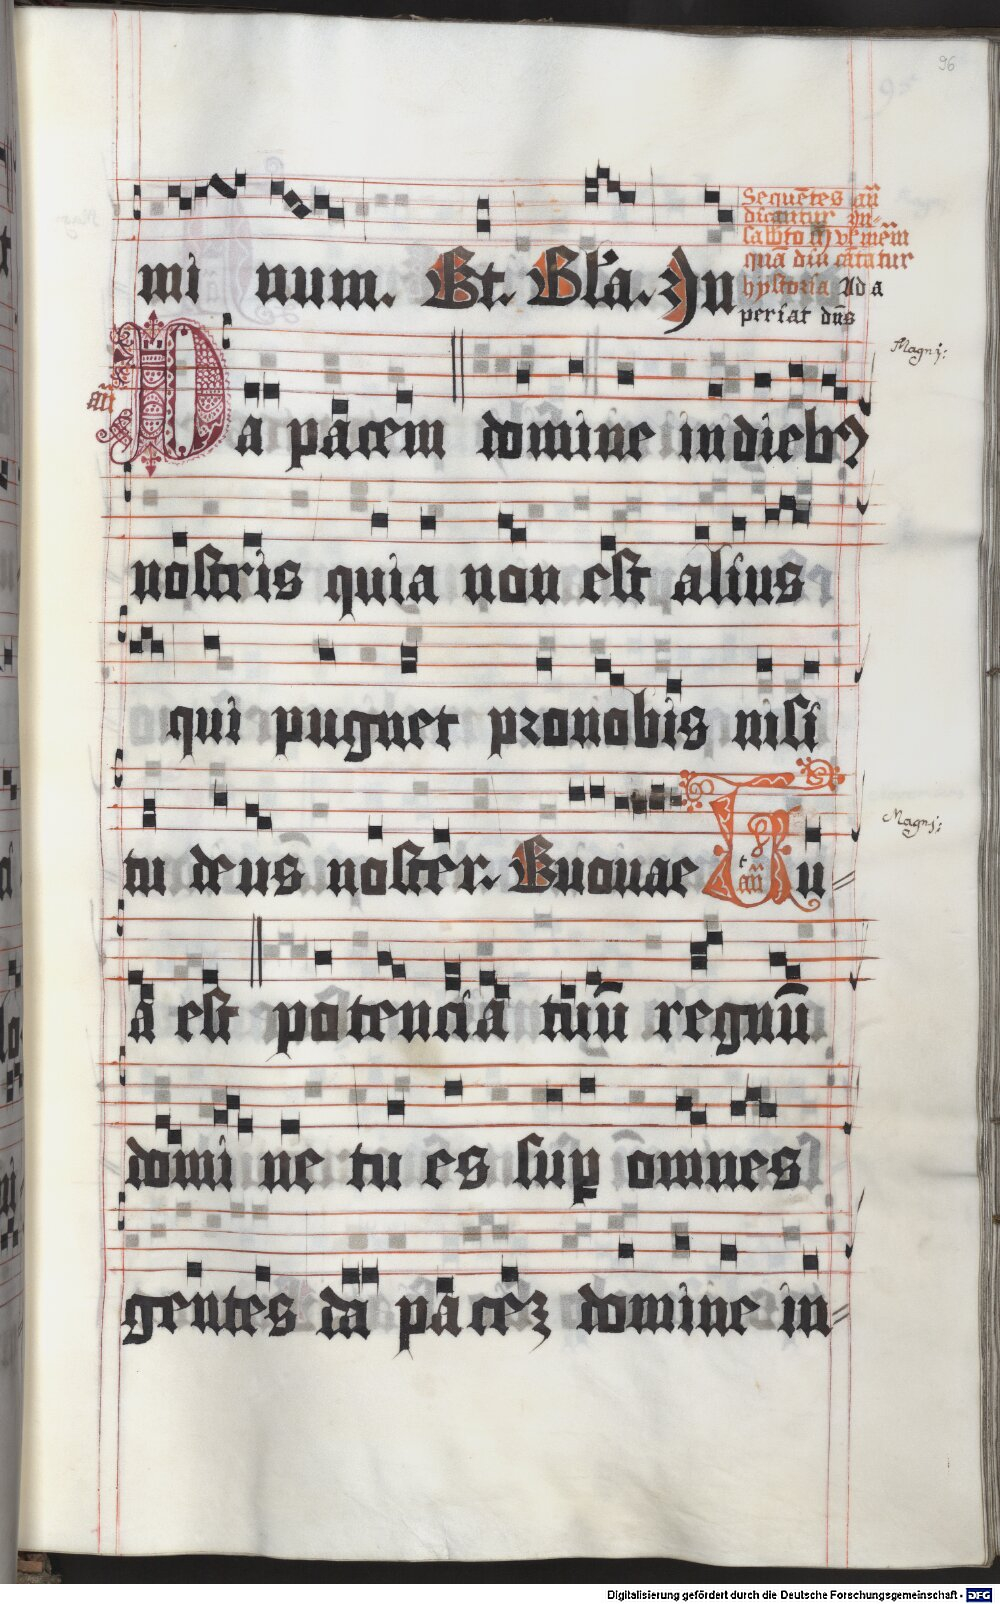 96
Sequētes añ
dicantur in
sabbto
quā diu cātatur
hystoria Ad a
periat dñs
mi num. Et. Gl'a. In
Magnj:
añ
Da pacem domine in dieb9
nostris quia non est alius
qui pugnet pronobis nisi
Magnj:
tu deus noster. Euouae Tu
añ
a est potencia tuū regnū
domi ne tu es sup omnes
gentes da pacēz domine in
Digitalisierung gefördert durch die Deutsche Forschungsgemeinschaft - DFG